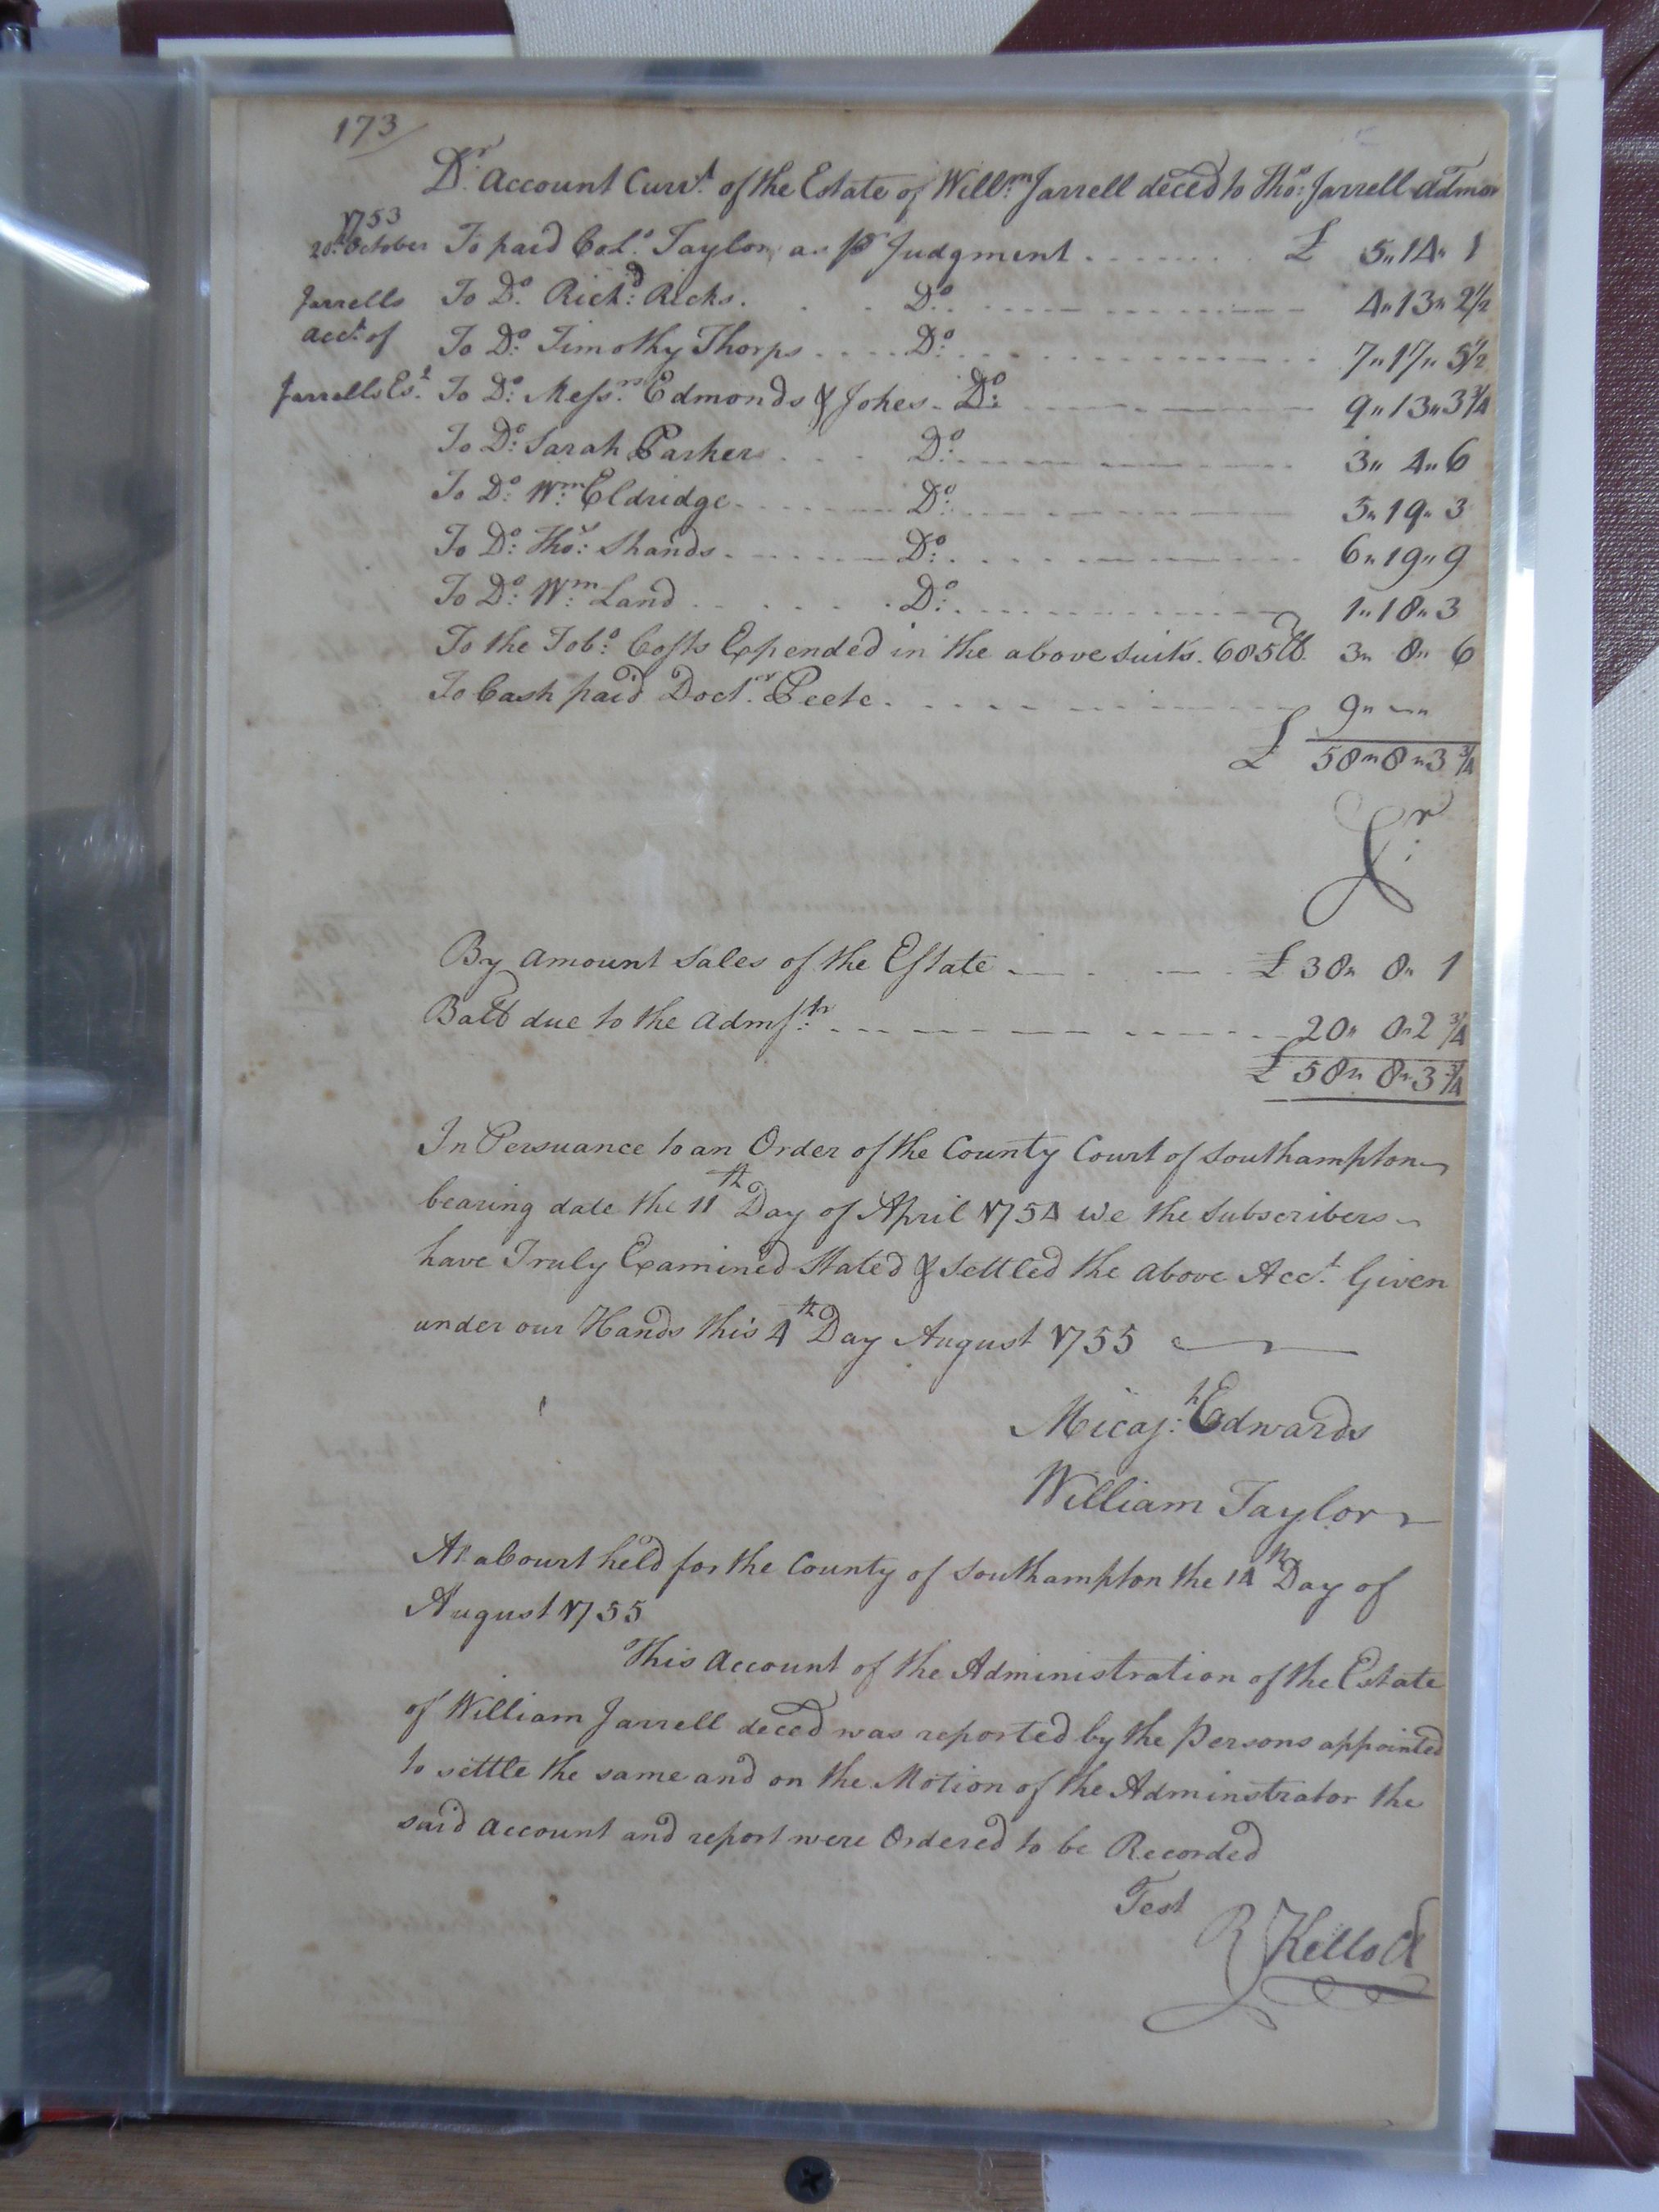 173
Dr. Account Curr.t of the Estate of Will.m Jarrell deced to Tho.s Jarrell Admor
1753
20th October To paid Col.o Taylor as pr Judgment £ 5"14"1
Jarrells To Do. Rich.d Ricks. Do. 4"13"2 1/2
acct. of To Do. Timothy Thorps Do. 7"17"5 1/2
Jarrells Est. To Do. Messrs. Edmonds & Jones Do. 9"13"3 3/4
To Do. Sarah Parker Do. 3"4"6
To Do. Wm. Eldridge Do. 5"19"3
To Do. Tho.s Shands Do. 6"19"9
To Do. Wm. Land Do. 1"18"3
To the Tob.o Costs Expended in the above Suits. 685 lb. 3"8"6
To Cash paid Doct.r Peete 9"-"-
£ 58"8"3 3/4
Cr.
By amount Sales of the Estate £ 38"8"1
Balla due to the Admstr. 20"0"2 3/4
£ 58"8"3 3/4
In Persuance to an Order of the County Court of Southampton
bearing date the 11th Day of April 1754 we the Subscribers
have Truly Examined Stated & Settled the above Acct. Given
under our Hands this 4th Day August 1755
Micaj.h Edwards
William Taylor
At a Court held for the County of Southampton the 14th Day of
August 1755
This Account of the Administration of the Estate
of William Jarrell deced was reported by the Persons appointed
to settle the same and on the Motion of the Adminstrator the
said Account and report were Ordered to be Recorded
Test
R Kello Cl